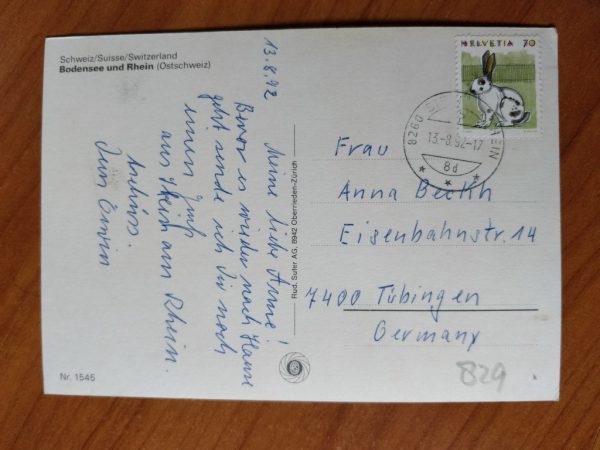 Schweiz/Suisse/Switzerland
Bodensee und Rhein (Ostschweiz)
13.8.92
Meine liebe Anne!
Bevor es wieder nach Hause
geht sende ich Dir noch
einen Gruß
aus Stein am Rhein.
Tschüss.
Dein
Nr. 1545
Rud. Suter AG, 8942 Oberrieden-Zürich
HELVETIA 70
8260 RHEIN
13.-8.92-17
8d
Frau
Anna Beckh
Eisenbahnstr. 14
7400 Tübingen
Germany
829
k